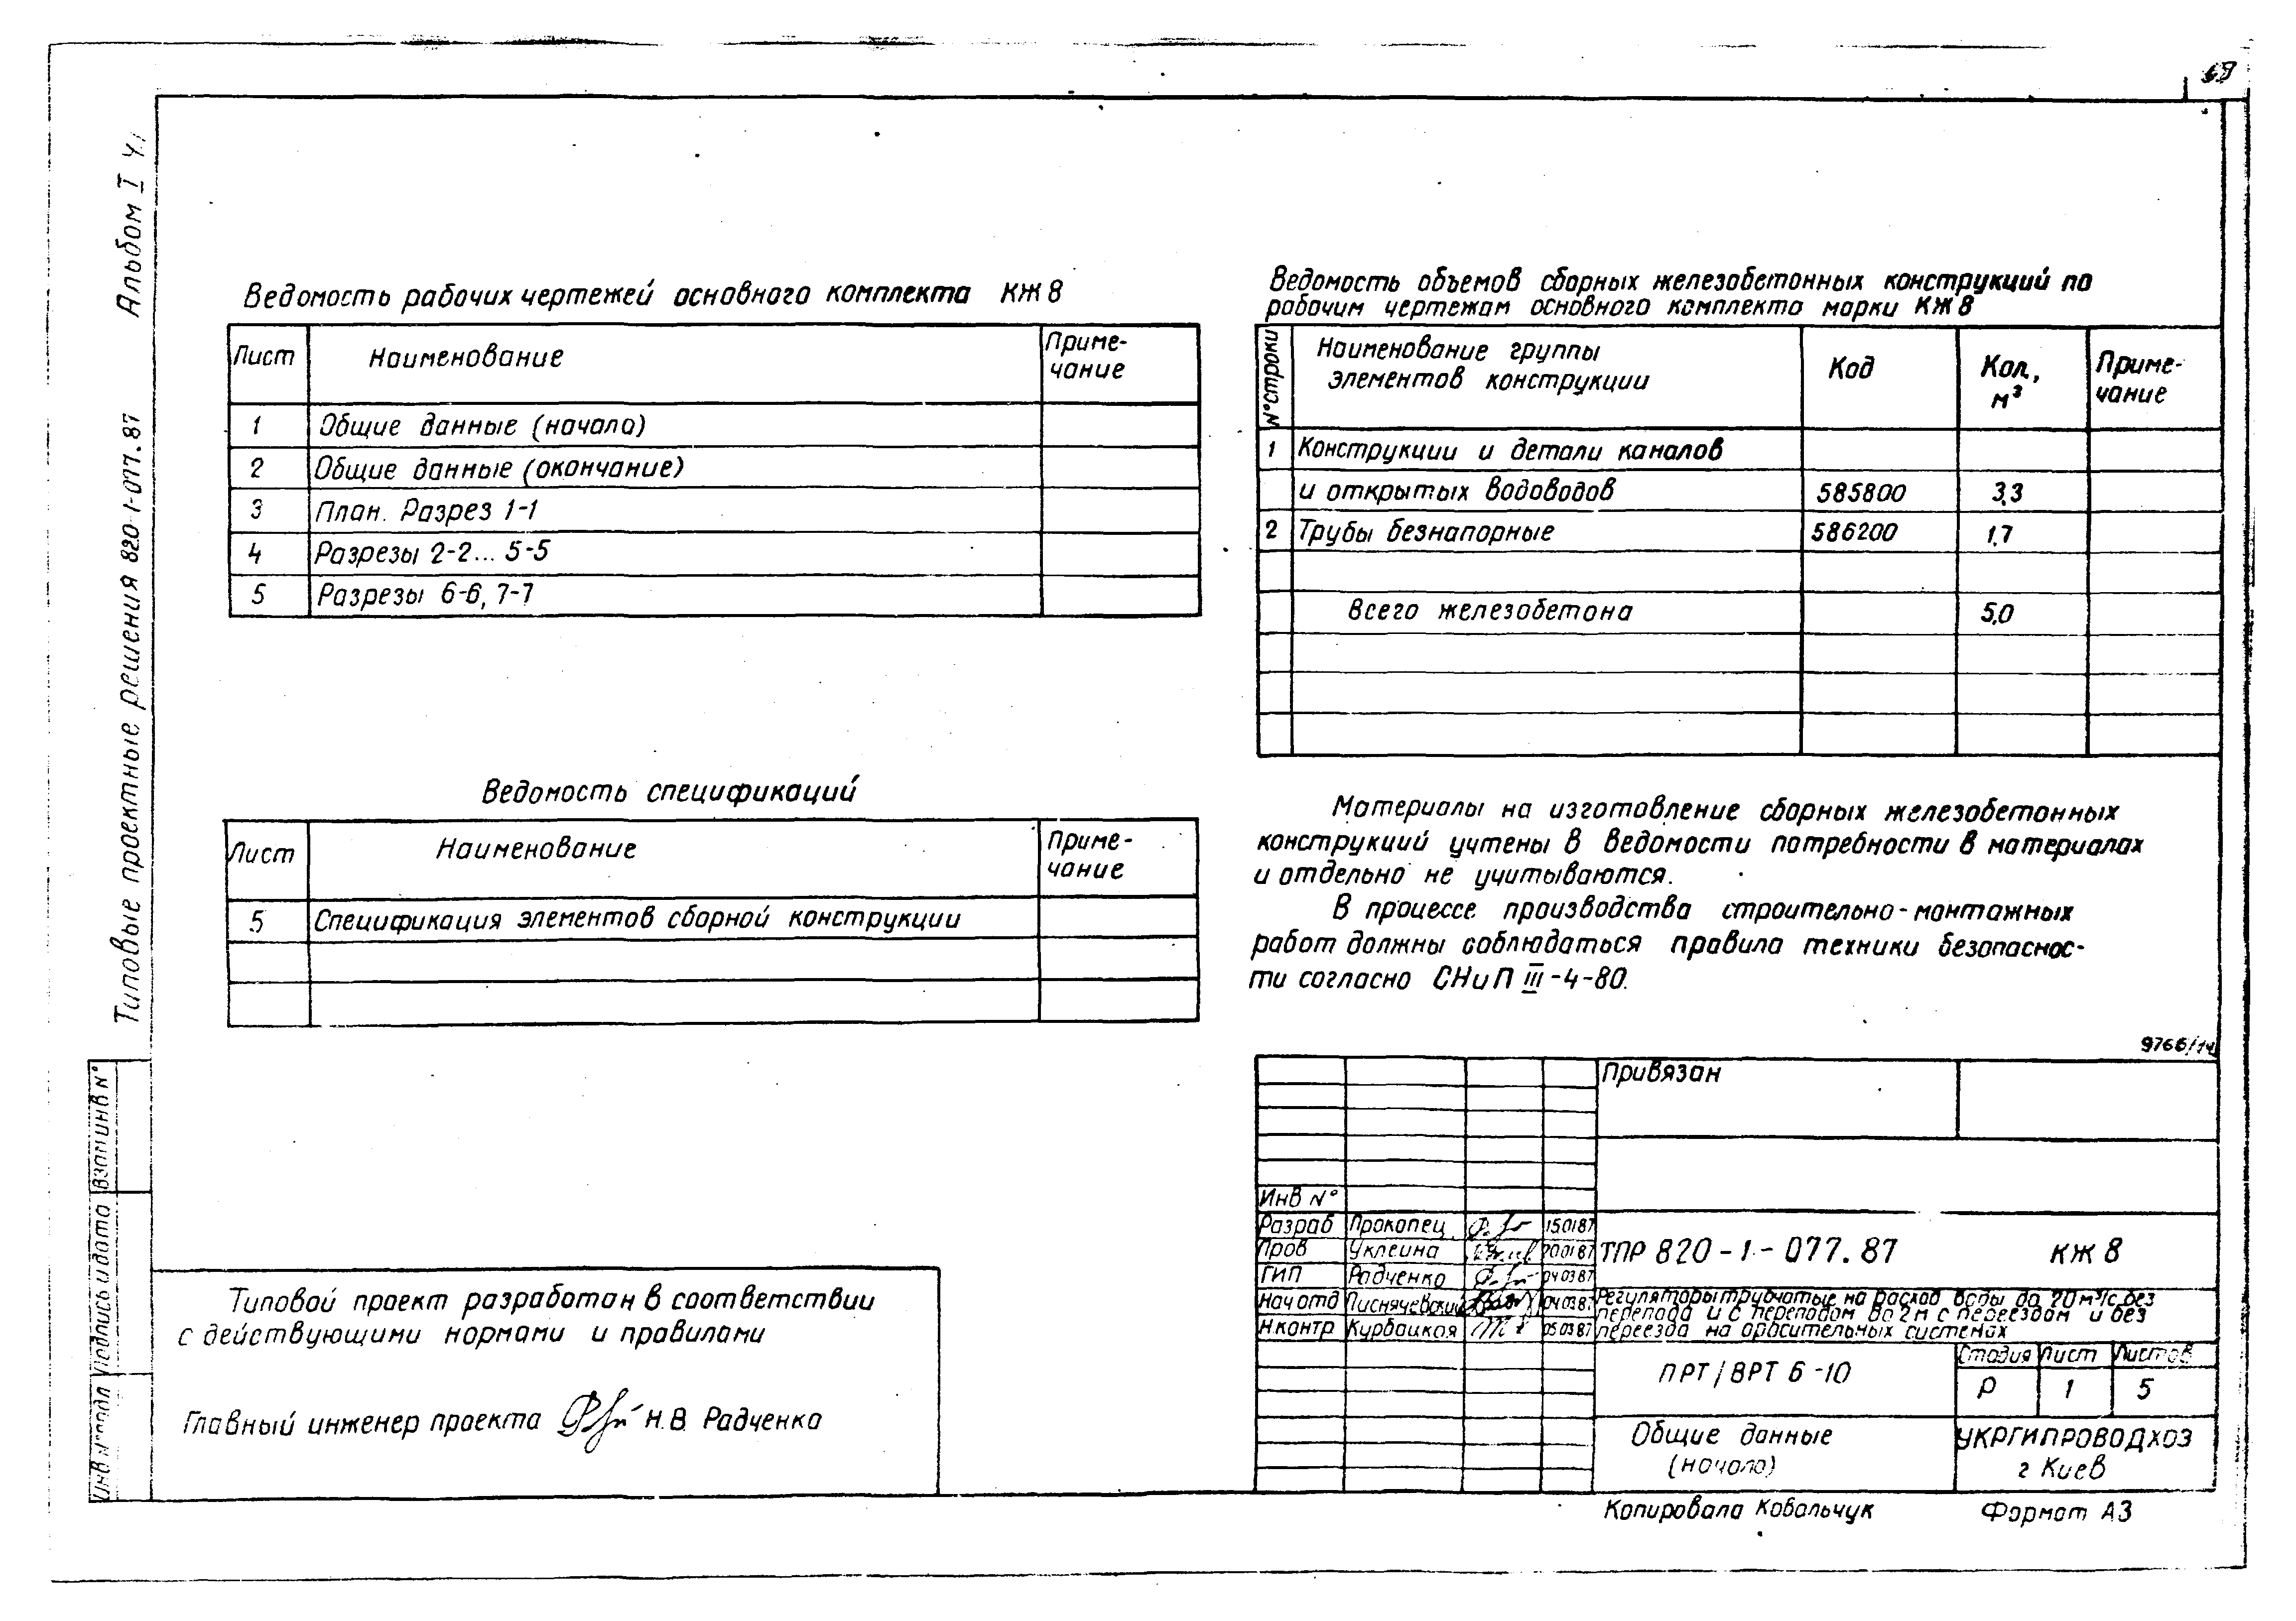 69
Альбом I ч.1
Типовые проектные решения 820-1-077.87
Ведомость рабочих чертежей основного комплекта КЖ 8
Лист Наименование Приме-
чание
1 Общие данные (начало)
2 Общие данные (окончание)
3 План. Разрез 1-1
4 Разрезы 2-2... 5-5
5 Разрезы 6-6, 7-7
Ведомость спецификаций
Лист Наименование Приме-
чание
5 Спецификация элементов сборной конструкции
Ведомость объемов сборных железобетонных конструкций по
рабочим чертежам основного комплекта марки КЖ 8
N° строки Наименование группы
элементов конструкции Код Кол., м³ Приме-
чание
1 Конструкции и детали каналов
и открытых водоводов 585800 3,3
2 Трубы безнапорные 586200 1,7
Всего железобетона 5,0
Материалы на изготовление сборных железобетонных
конструкций учтены в ведомости потребности в материалах
и отдельно не учитываются.
В процессе производства строительно-монтажных
работ должны соблюдаться правила техники безопаснос-
ти согласно СНиП III-4-80.
9766/14
Привязан
Инв N°
Разраб Прокопец 15.01.87
Пров Уклеина 20.01.87
ГИП Радченко 04.03.87
Нач отд Писнячевский 04.03.87
Н контр Курбацкая 05.03.87
ТПР 820-1-077.87 КЖ 8
Регуляторы трубчатые на расход воды до 20 м³/с без
перепада и с перепадом до 2м с переездом и без
переезда на оросительных системах
ПРТ/ВРТ 6-10
Стадия Лист Листов
Р 1 5
Общие данные
(начало)
УКРГИПРОВОДХОЗ
г Киев
Копировала Ковальчук Формат А3
Типовой проект разработан в соответствии
с действующими нормами и правилами
Главный инженер проекта Н.В. Радченко
Взам инв N°
Подпись и дата
Инв N° подл